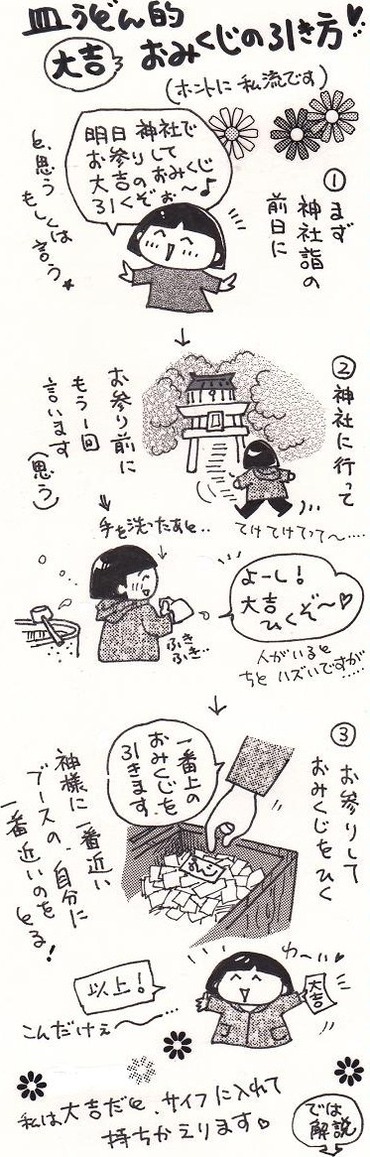 皿うどん的
大吉
おみくじの引き方♥
(ホントに私流です)
① まず
神社詣の
前日に
明日神社で
お参りして
大吉のおみくじ
引くぞぉ〜♪
と、思う
もしくは
言う。
↓
② 神社に行って
てけてけてって〜‥‥
お参り前に
もう1回
言います
(思う)
手を洗ったあと‥
ふき
ふき‥
よーし!
大吉
ひくぞ〜♡
人がいると
ちとハズいですが‥‥
↓
③ お参りして
おみくじをひく
一番上の
おみくじを
引きます
神様に一番近い
ブースの、自分に
一番近いのを
とる!
わ〜い♥
大吉
以上!
こんだけぇ〜‥‥
私は大吉だと、サイフに入れて
持ちかえります♡
では
解説